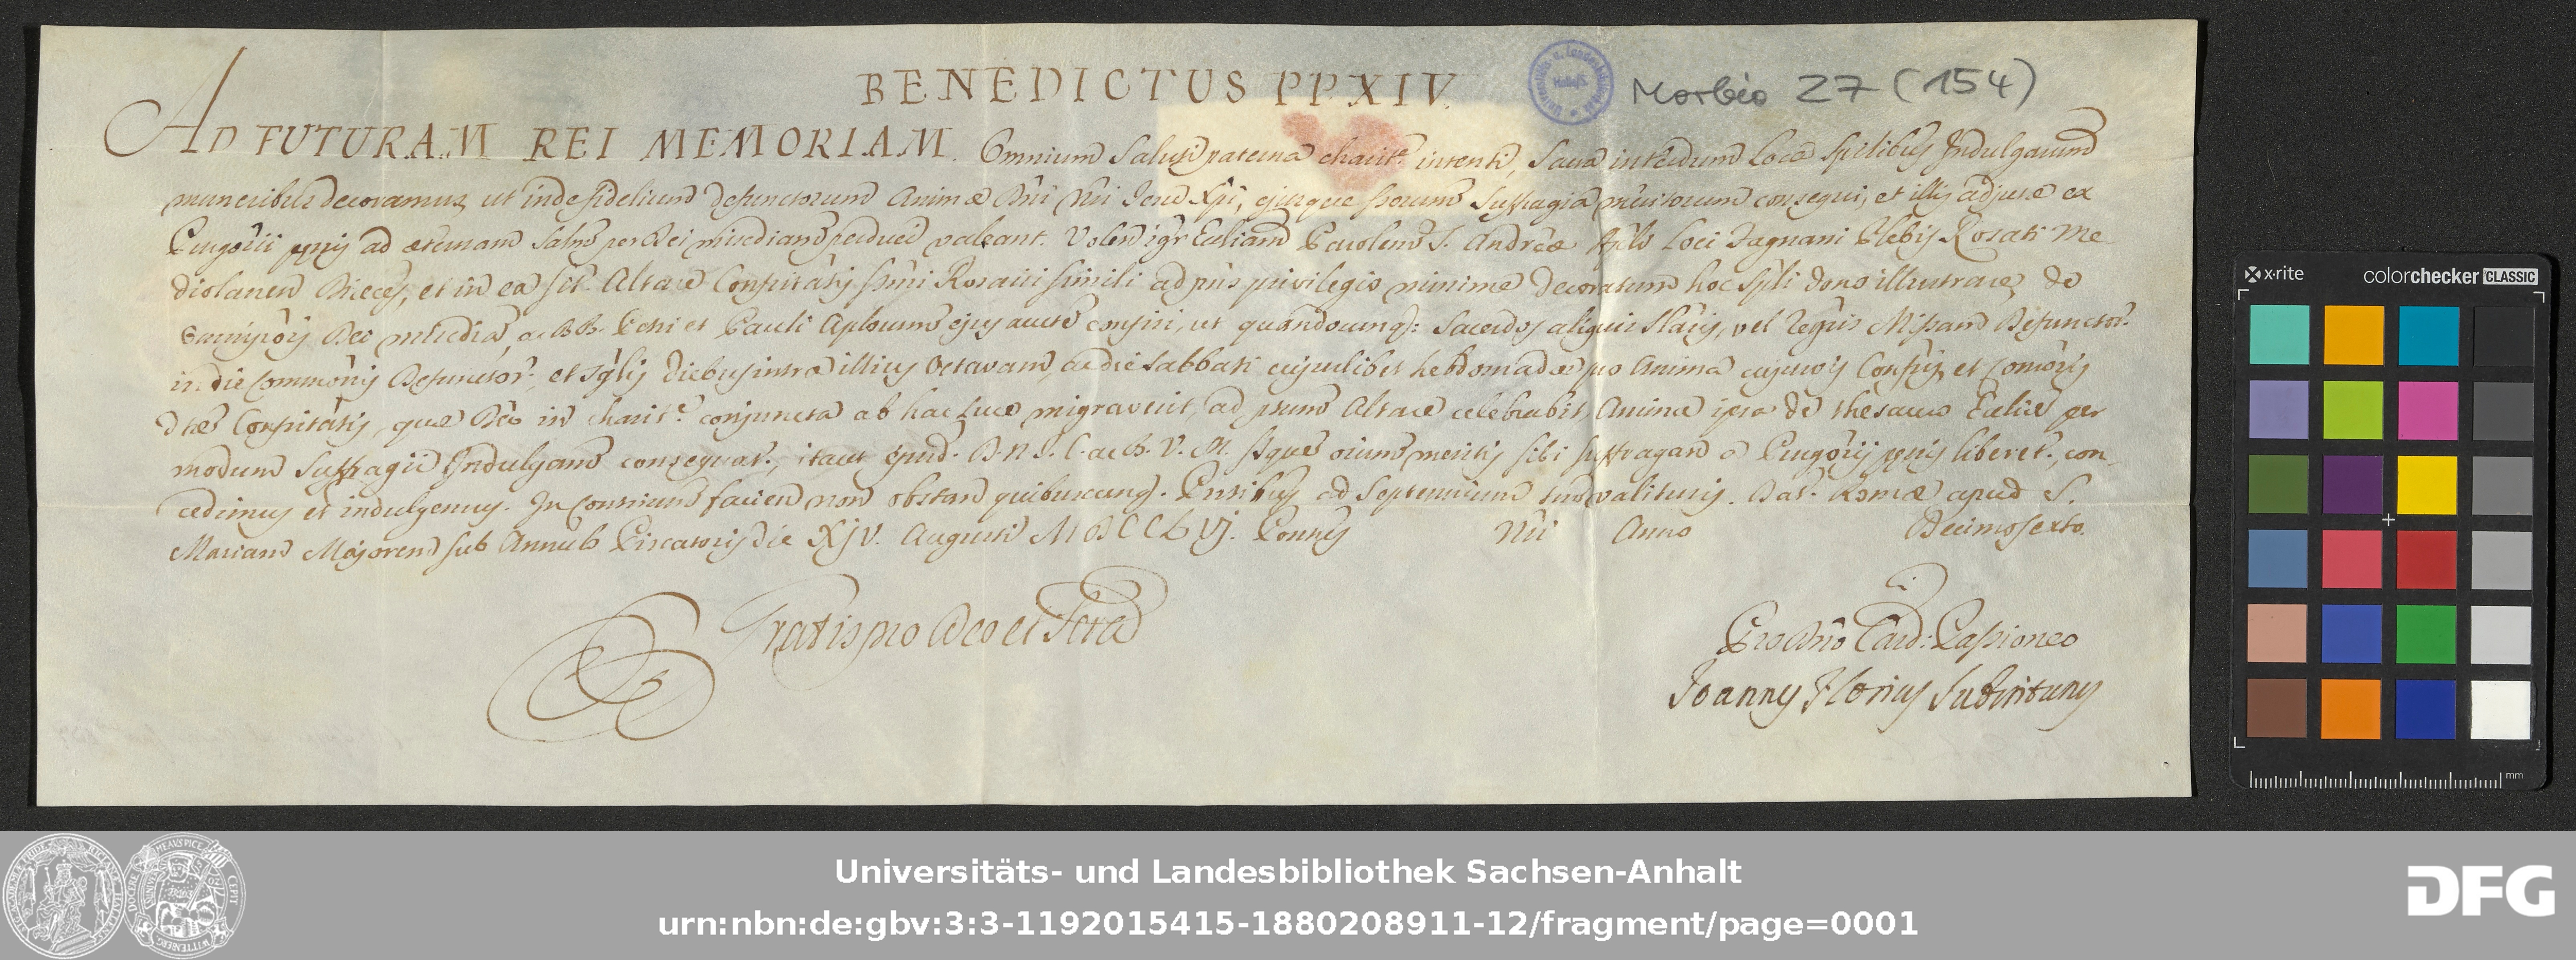 BENEDICTUS PP XIV.
Morbio 27 (154)
AD FUTURAM REI MEMORIAM. Omnium Saluti paterna charit.e intenti, Sacra interdum Loca Sp̃ilibus Indulgiarum
muneribus decoramus, ut inde fidelium Defunctorum Animæ Dñi Ñri Jesu Xp̃i, ejusque Sctorum Suffragia meritorum consequi, et illis adjutæ ex
Purgorii pœnis ad æternam Salut̃ per Dei miscdiam perduci valeant. Volen igr̃ Ecliam Parolem S. Andreæ Apl̃i Loci Zagnani Plebis Rosati Me
diolanen Diæces, et in ea sit. Altare Confrit̃atis Sm̃i Rosarii simili ad pñs privilegio minime decoratum hoc Sp̃li dono illustrare, de
Omnip̃ois Dei miscdia, ac BB. Petri et Pauli Aplorum ejus aucte confisi, ut quandocumq: Sacerdos aliquis Slaris, vel Regris Missam Defunctor.
in die Commõnis Defunctor., et Sg̃lis diebus intra illius Octavam, ac die Sabbati cujuslibet hebdomadæ pro Anima cujuscũs Confris, et Consoris
dtæ Confrit̃atis, quæ Deo in charit.e conjuncta ab hac Luce migraverit, ad ptum Altare celebrabit, Anima ipsa de thesauro Ecliæ per
modum Suffragii Indulgam consequat., itaut ejusd. D. N. J. C. ac B. V. M. Sque oium meritis sibi suffragan a Purgorij pœnis liberet., con
cedimus et indulgemus. In Contrium facien non obstan quibuscumq. Pntibus ad Septennium tm̃ valituris. Dat. Romæ apud S.
Mariam Majorem sub Annulo Piscatoris die XIV. Augusti MDCCLVJ. Pontus Ñri Anno Decimosexto.
Gratis pro Deo et Scra
Pro Dño Card: Passioneo
Joannes Florius Substitutus
x-rite colorchecker CLASSIC
mm
Universitäts- und Landesbibliothek Sachsen-Anhalt
urn:nbn:de:gbv:3:3-1192015415-1880208911-12/fragment/page=0001
DFG